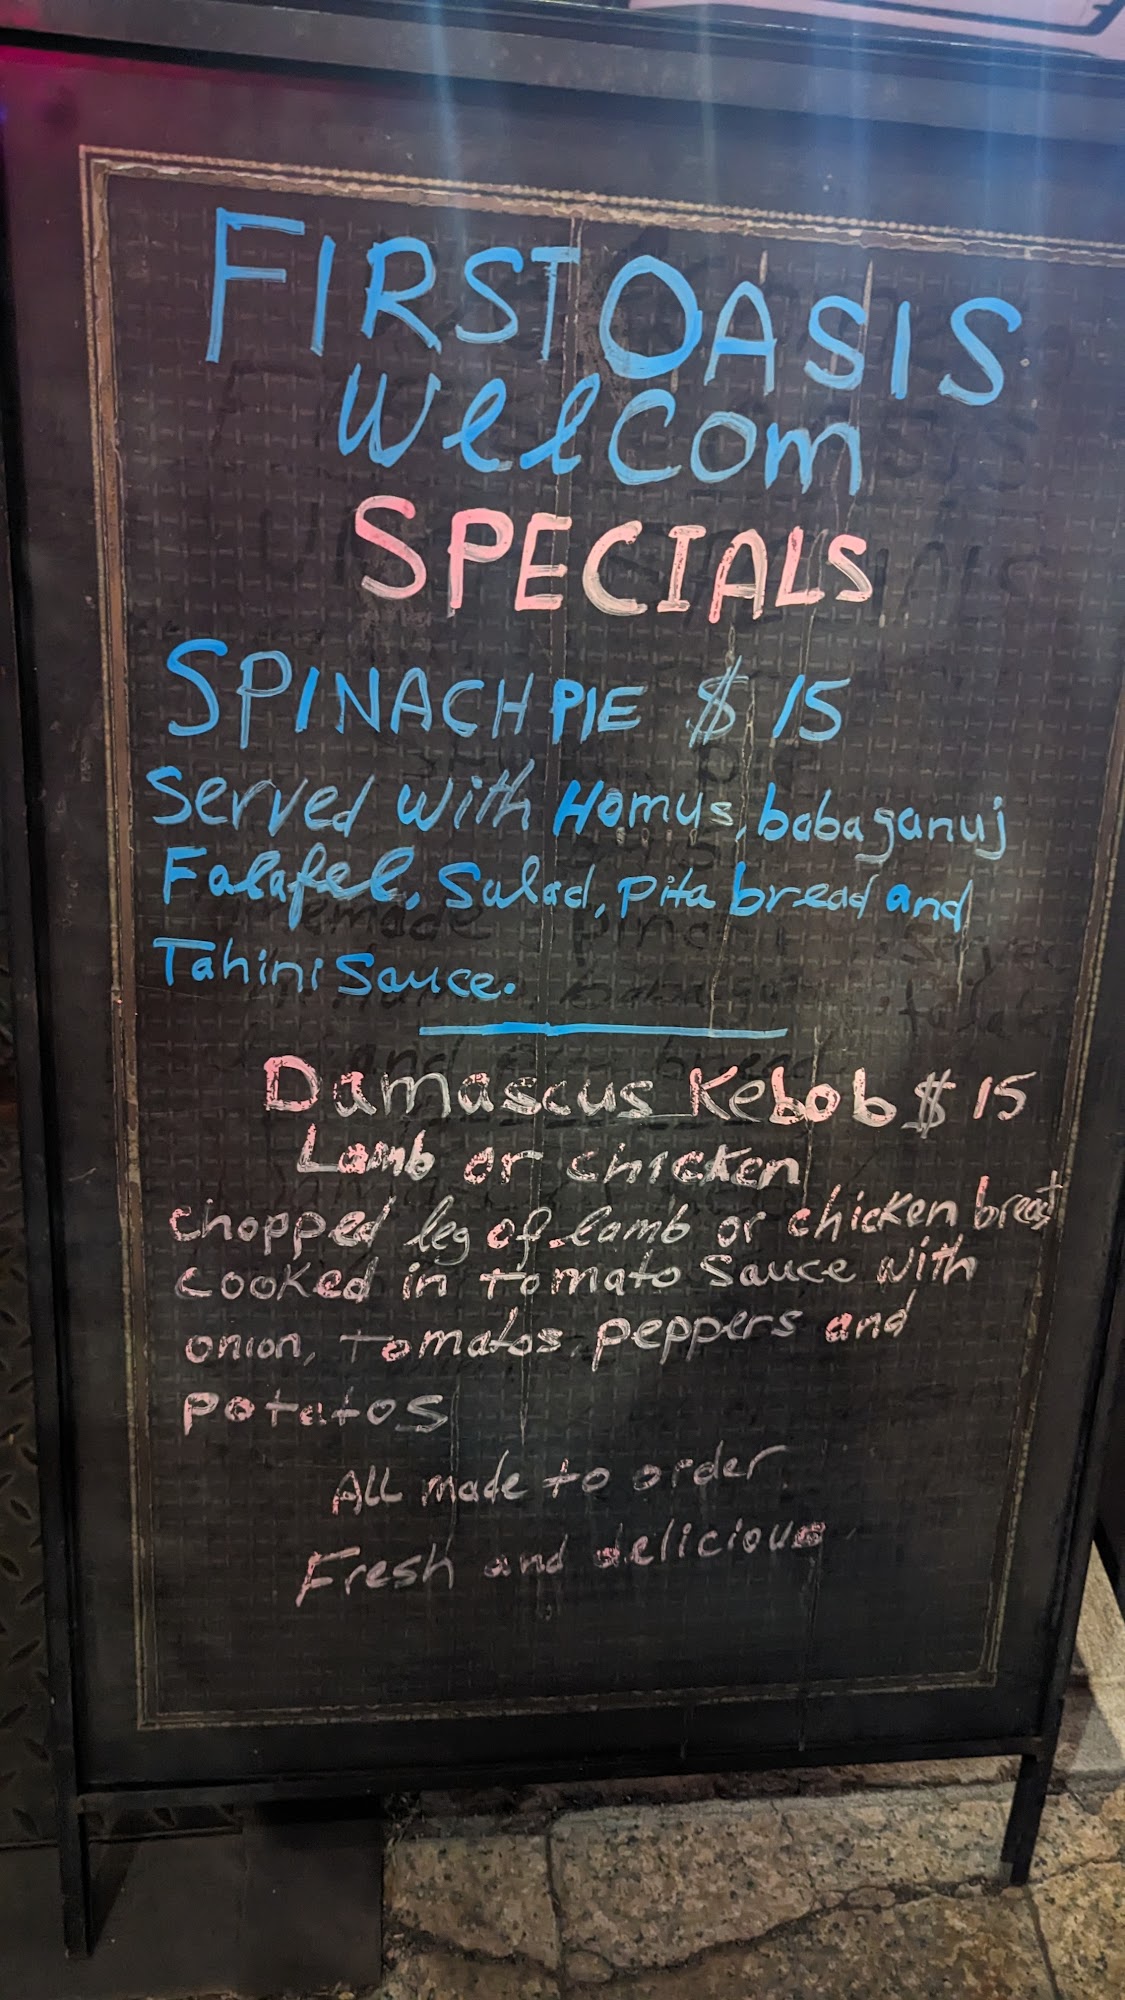 FIRST OASIS
WelCom
SPECIALS
SPINACH PIE $ 15
Served with Homus, babaganuj
Falafel, Salad, Pita bread and
Tahini Sauce.
Damascus Kebob $ 15
Lamb or chicken
chopped leg of lamb or chicken breast
cooked in tomato Sauce with
onion, tomatos, peppers and
potatos
All made to order
Fresh and delicious